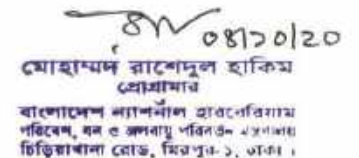 08/20/20
মোহাম্মদ রাশেদুল হাকিম
প্রোগ্রামার
বাংলাদেশ ন্যাশনাল হারবেরিয়াম
পরিবেশ, বন ও জলবায়ু পরিবর্তন মন্ত্রণালয়
চিড়িয়াখানা রোড, মিরপুর-১, ঢাকা ।